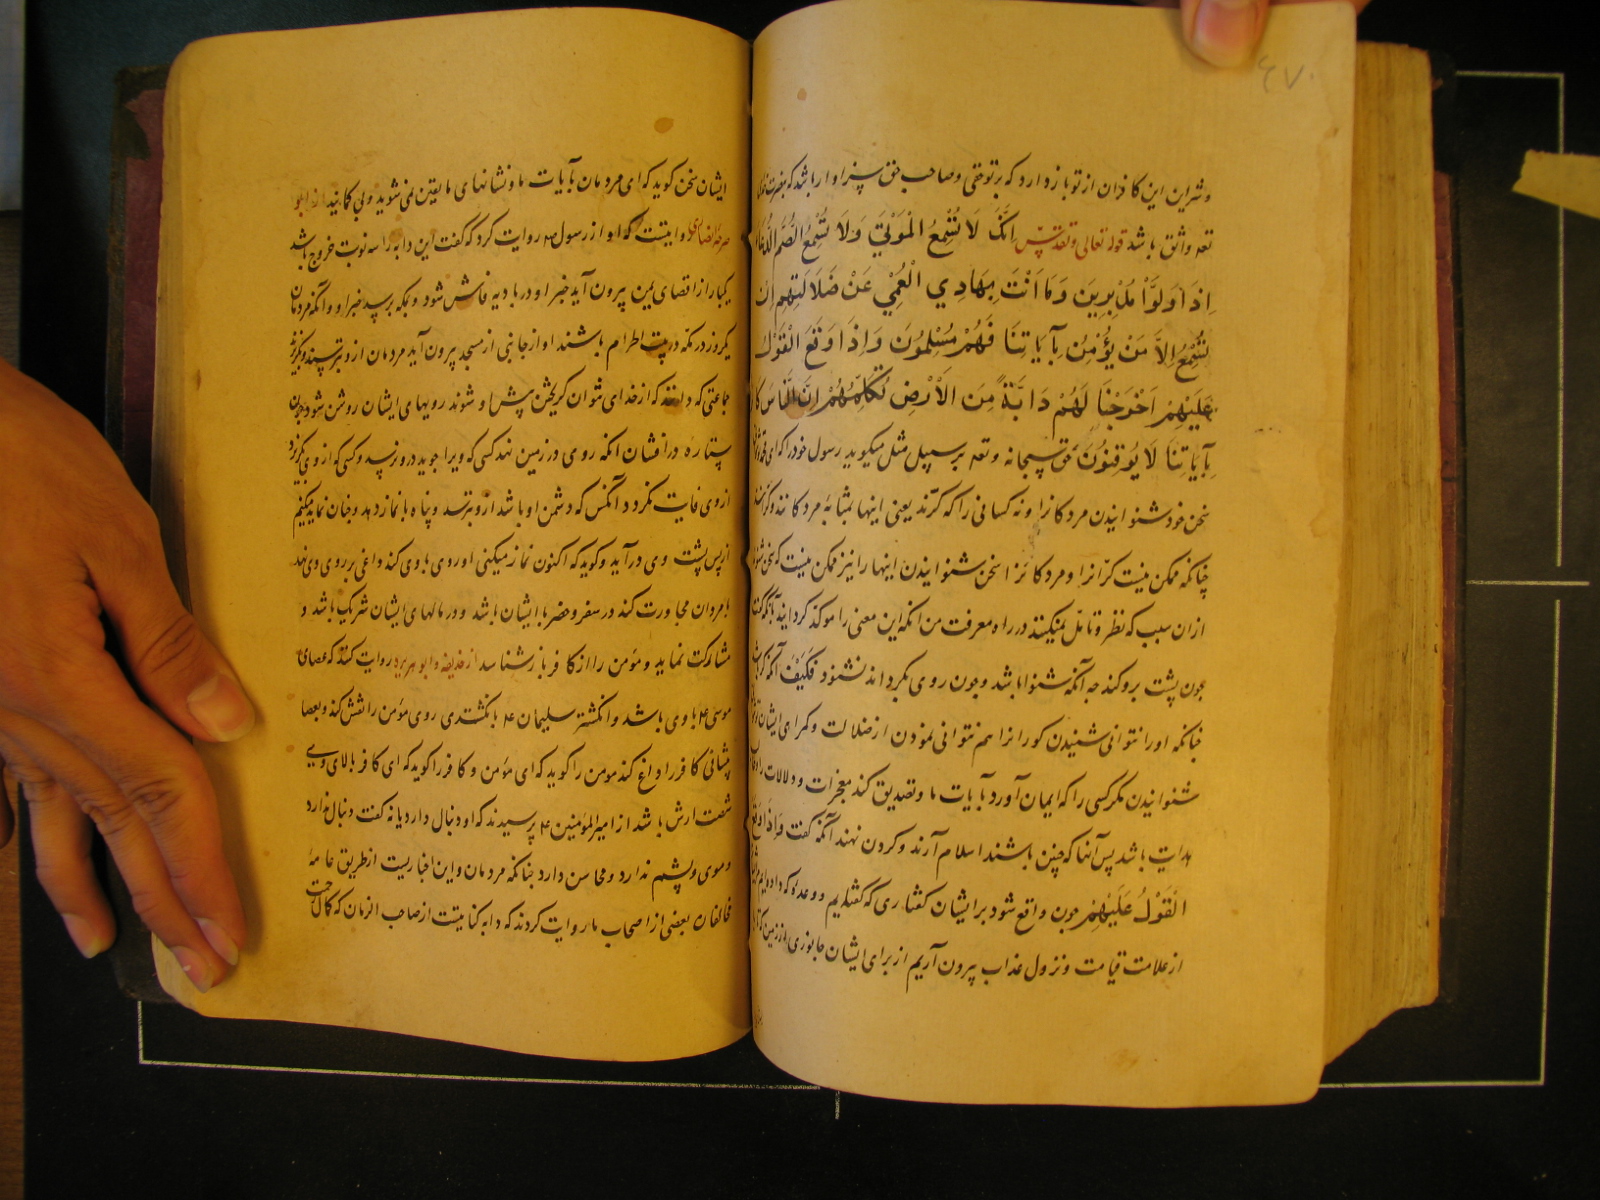 ٤٧٠
و شر این این کافران از تو باز دارد که بر تو حقی و صاحب حق سزاوار باشد که بنصرت خدای
تعه واثق باشد قوله تعالی و تقدس اِنَّکَ لَا تُسْمِعُ الْمَوْتَیٰ وَلَا تُسْمِعُ الصُّمَّ الدُّعَاءَ
اِذَا وَلَّوْا مُدْبِرِینَ وَمَا اَنْتَ بِهَادِي الْعُمْيِ عَنْ ضَلَالَتِهِمْ اِنْ
تُسْمِعُ اِلَّا مَنْ یُؤْمِنُ بِآیَاتِنَا فَهُمْ مُسْلِمُونَ وَاِذَا وَقَعَ الْقَوْلُ
عَلَیْهِمْ اَخْرَجْنَا لَهُمْ دَابَّةً مِنَ الْاَرْضِ تُکَلِّمُهُمْ اِنَّ النَّاسَ کَانُوا
بِآیَاتِنَا لَا یُوقِنُونَ حق سبحانه و تعه بر سبیل مثل میکوید رسول خود را که ای محمد
سخن خود شنوانیدن مردکانرا و نه کسانی را که کرند یعنی اینها بمثابهٔ مردکانند و کران
چنانکه ممکن نیست کرّانرا و مردکانرا سخن شنوانیدن اینها را نیز ممکن نیست که سخن شنوند
از ان سبب که نظر و تامّل نمیکنند در راه معرفت من انکه این معنی را موکد کردانید بآنکه کفت
چون پشت برو کند چه آنکه شنوا باشد و چون روی بکرداند نشنود فَکَیْفَ آنکه کر باشد
چنانکه او را نتوانی شنیدن کورانرا هم نتوانی نمودن از ضلالت و کمرای ایشان
شنوانیدن مکر کسی را که ایمان آورد بآیات ما و تصدیق کند معجزات و دلالات را
هدایت باشد پس آنها که چنین باشند اسلام آرند و کردن نهند آنکه کفت وَاِذَا وَقَعَ
الْقَوْلُ عَلَیْهِمْ چون واقع شود بر ایشان کفتاری که کفته‌ایم و وعده که داده‌ایم
از علامت قیامت و نزول عذاب بیرون آریم از برای ایشان جانوری از زمین که با
ایشان سخن کوید که ای مردمان بآیات ما و نشانهای ما یقین نمی‌شوید و بی کمانید
وا بیتست که او از رسول صه روایت کرد که کفت این دابه را سه نوبت خروج باشد
یکبار از اقصای یمن بیرون آید خبر او در بادیه فاش شود و بمکه برسد خبر او و آنکه مردمان
یکروز در مکّه در بیت الحرام باشند او از جانبی از مسجد بیرون آید مردمان از و بترسند و بکریزند
جماعتی که دانند که از خدای نتوان کریختن پیش او شوند رویهای ایشان روشن شود چون
ستاره درافشان انکه روی در زمین نهد کسی که ویرا جوید درو نرسد و کسی که از وی بکریزد
از وی فایت نکردد آنکس که دشمن او باشد ازو بترسد و پناه با نماز دهد و چنان نماید که نماز میکنیم
از پس پشت وی در آید و کوید که اکنون نماز میکنی او روی با وی کند داغی بر روی وی نهد
با مردمان مجاورت کند در سفر و حضر با ایشان باشد و در مالهای ایشان شریک باشد و
مشارکت نماید و مؤمن را از کافر باز شناسد از حذیفه و ابو هریره روایت کنند که عصای
موسی ۴ با وی باشد و انکشتر سلیمان ۴ بانکشتری روی مؤمن را نقش کند و بعصا
پیشانی کافر را داغ کند مومن را کوید که ای مؤمن و کافر را کوید که ای کافر بالای وی
شصت ارش باشد از امیر المؤمنین ۴ پرسیدند که او دنبال دارد یا نه کفت دنبال ندارد
و موی و پشم ندارد و محاسن دارد چنانکه مردمان و این اخباریست از طریق عامهٔ
مخالفان بعضی از اصحاب ما روایت کردند که دابه کنایتست از صاحب الزمان که کمال